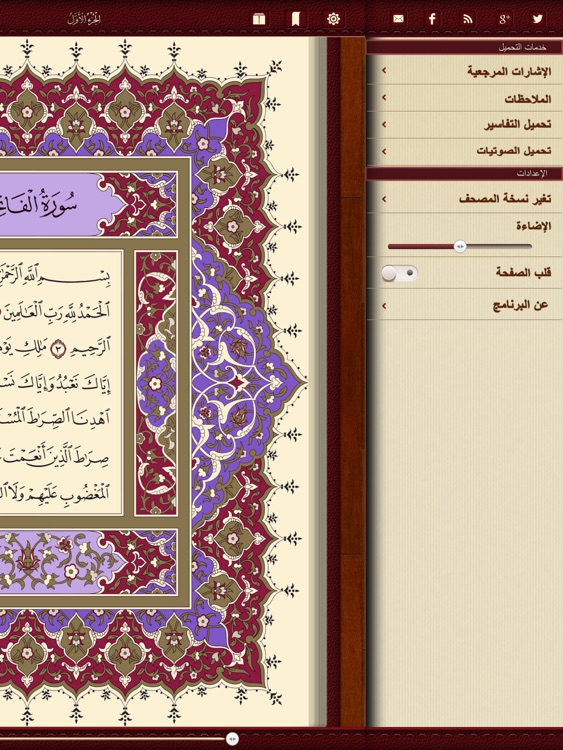 الجزء الأول
خدمات التحميل
الإشارات المرجعية
الملاحظات
تحميل التفاسير
تحميل الصوتيات
الإعدادات
تغير نسخة المصحف
الإضاءة
قلب الصفحة
عن البرنامج
سُورَةُ
بِسْمِ ٱللَّهِ ٱلرَّحْمَٰنِ
ٱلْحَمْدُ لِلَّهِ رَبِّ ٱلْعَٰلَمِينَ
ٱلرَّحِيمِ ٣ مَٰلِكِ
إِيَّاكَ نَعْبُدُ وَإِيَّاكَ
ٱهْدِنَا ٱلصِّرَٰطَ
صِرَٰطَ ٱلَّذِينَ أَنْعَمْتَ
ٱلْمَغْضُوبِ عَلَيْهِمْ وَلَا